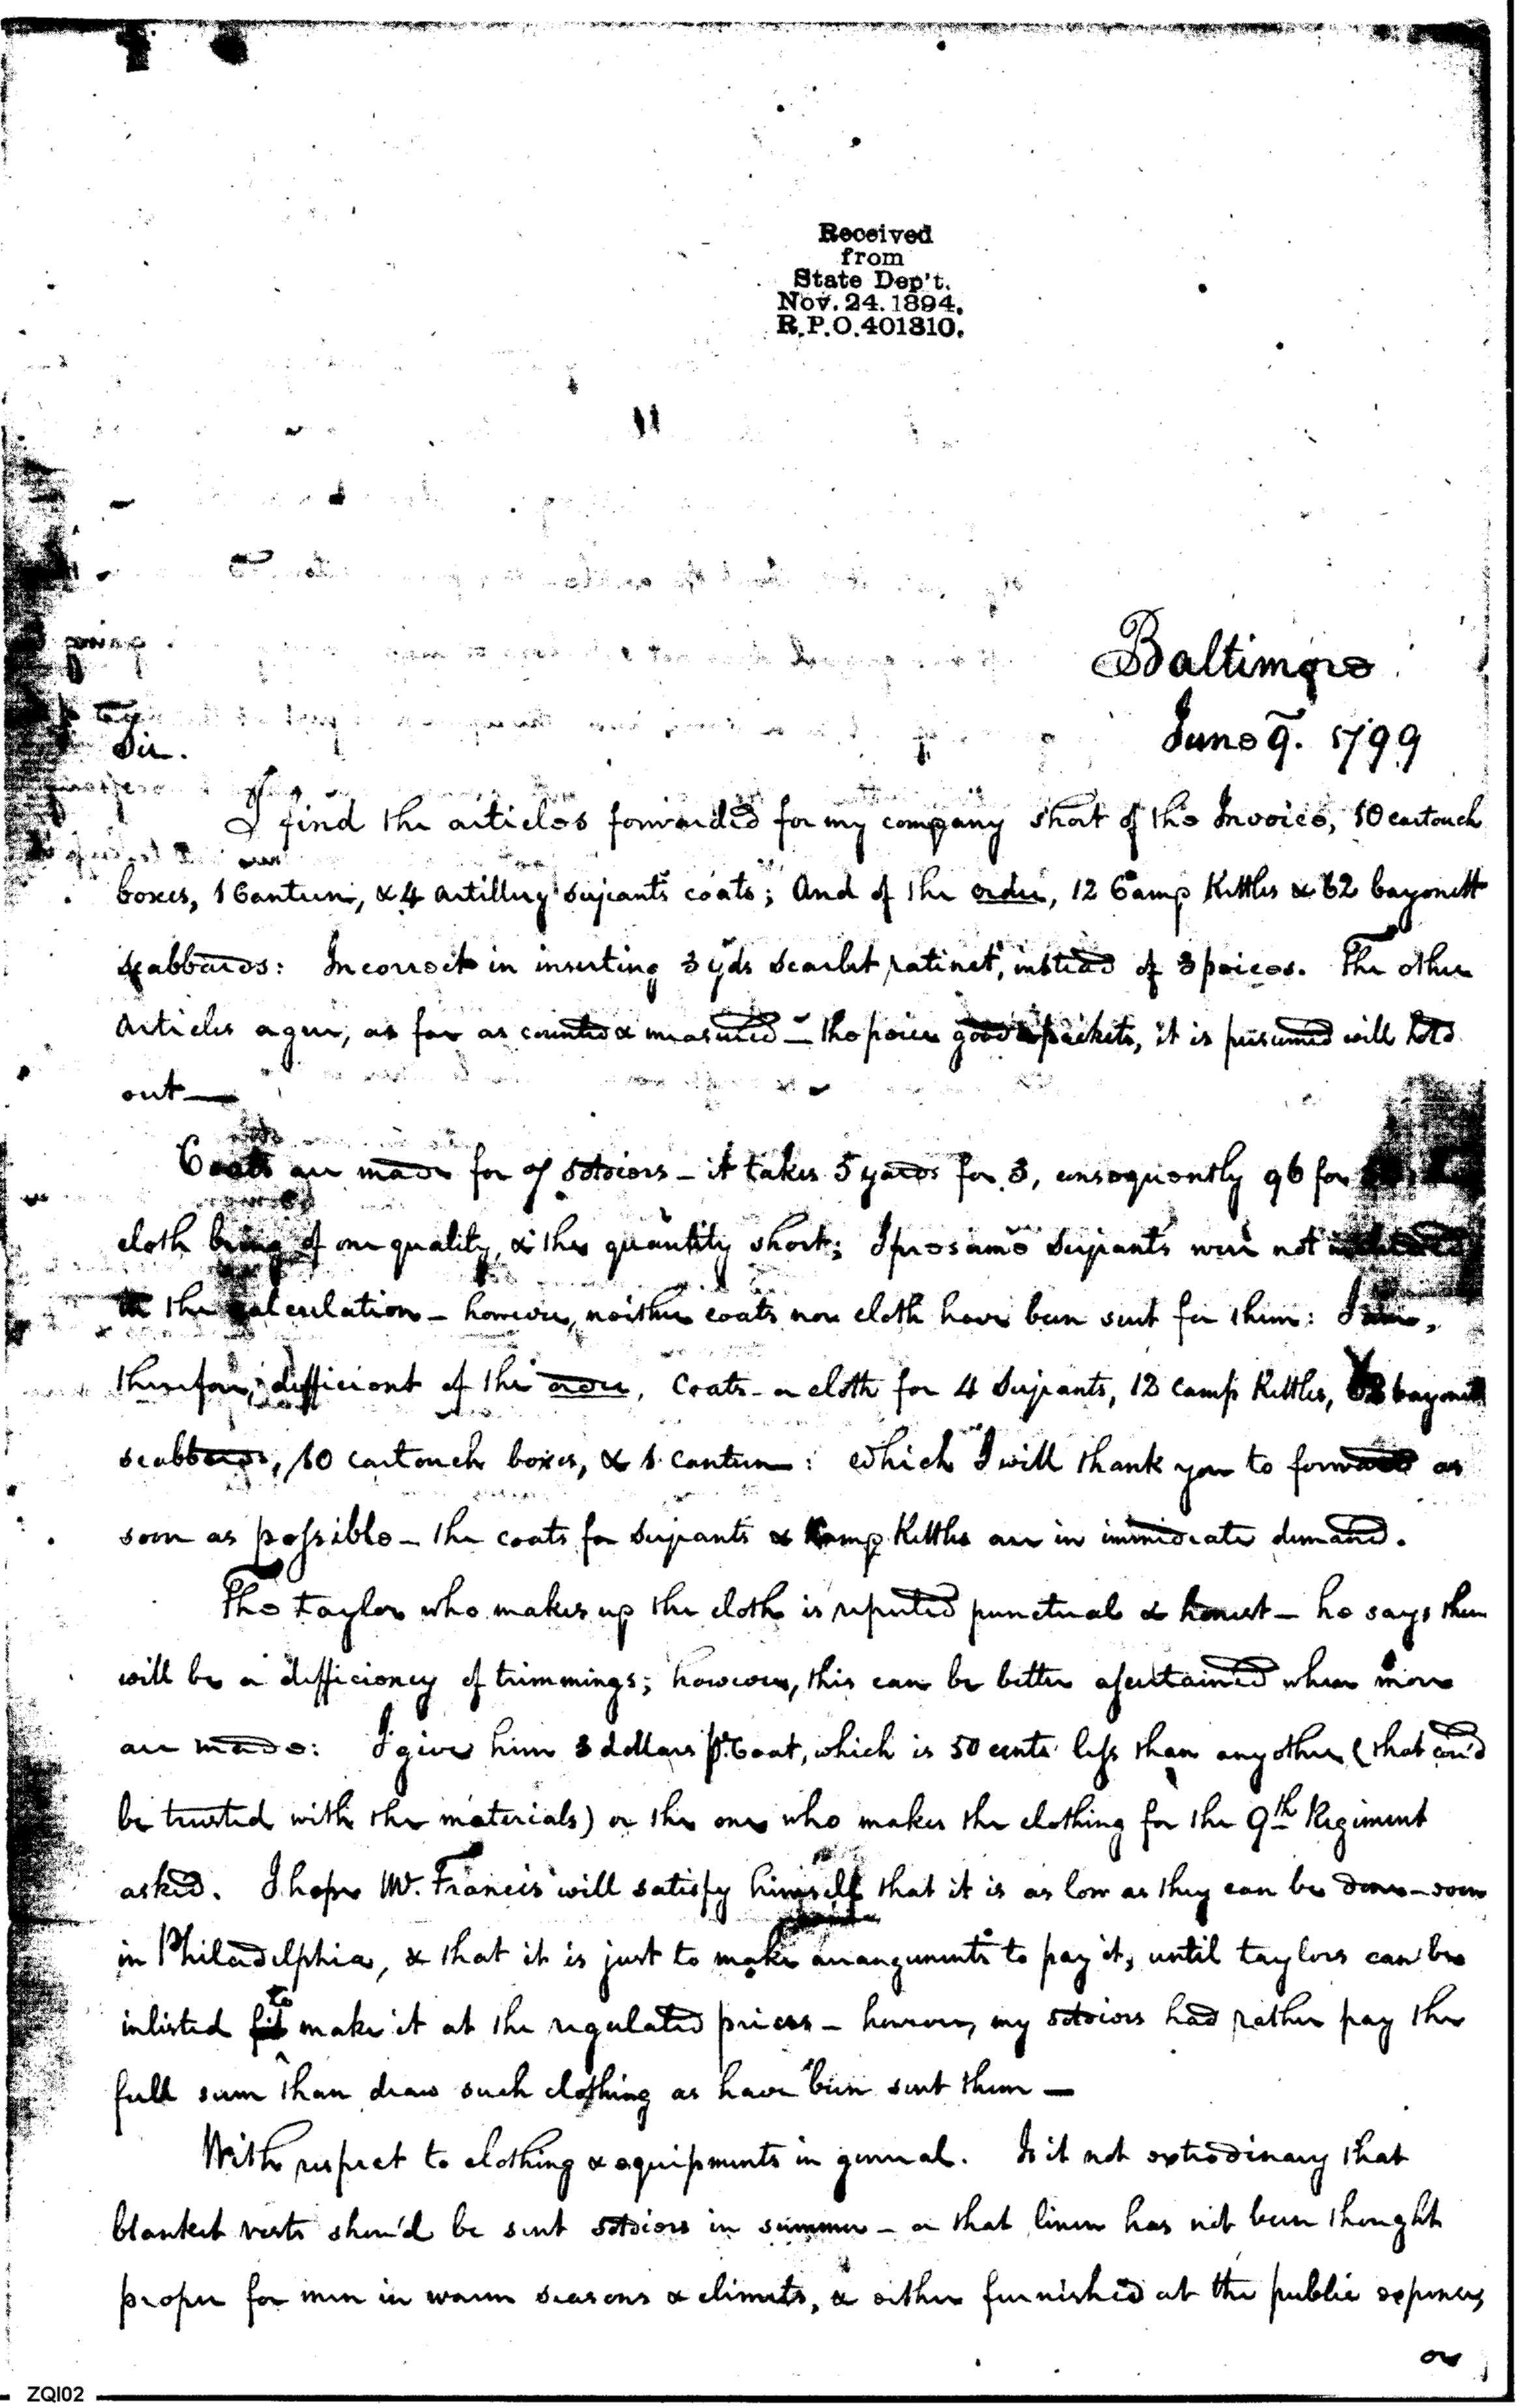 Received
from
State Dep't.
Nov. 24. 1894.
R.P.O. 401310.
Baltimore
June 9. 1799
Sir.
I find the articles forwarded for my company short of the Invoice, 10 cartouch
boxes, 1 Canteen, & 4 artillery serjeants coats; And of the order, 12 Camp Kettles & 62 bayonett
scabbards: Incorrect in inserting 3 yds scarlet ratinet, instead of 3 peices. The other
articles agree, as far as counted & measured — the peice goods & packets, it is presumed will hold
out —
Coats are made for soldiers — it takes 5 yards for 3, consequently 96 for
cloth being of one quality, & the quantity short; I presume serjeants were not included
in the calculation — however, neither coats nor cloth have been sent for them: I am,
therefore, difficient of the order, Coats or cloth for 4 Serjeants, 12 camp Kettles, 62 bayonett
scabbards, 10 cartouch boxes, & 1 canteen: which I will thank you to forward as
soon as possible — the coats for serjeants & Camp Kettles are in immediate demand.
The taylor who makes up the cloth is reputed punctual & honest — he says there
will be a difficiency of trimmings; however, this can be better assertained when more
are made: I give him 3 dollars pr. Coat, which is 50 cents less than any other (that cou'd
be trusted with the materials) or the one who makes the clothing for the 9th Regiment
asked. I hope Mr. Francis will satisfy himself that it is as low as they can be done — even
in Philadelphia, & that it is just to make arrangements to pay it, until taylors can be
inlisted to make it at the regulated prices — however, my soldiers had rather pay the
full sum than draw such clothing as have been sent them —
With respect to clothing & equipments in general. Is it not extrodinary that
blanket vests shou'd be sent soldiers in summer — or that linen has not been thought
proper for men in warm seasons & climets, & either furnished at the public expence,
or
ZQI02